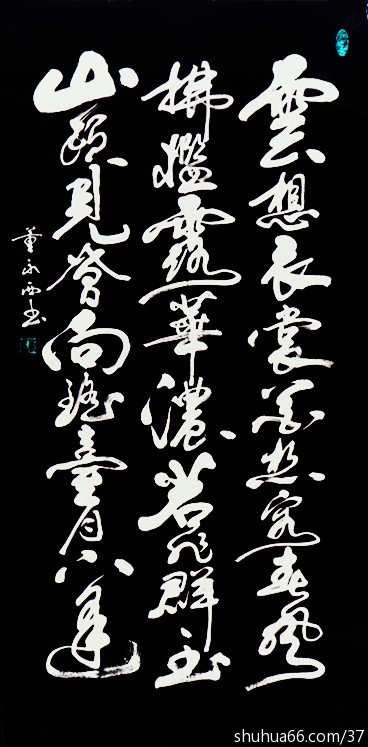 雲想衣裳花想容春風
拂檻露華濃若非群玉
山頭見會向瑤臺月下逢
董永西书
shuhua66.com/37